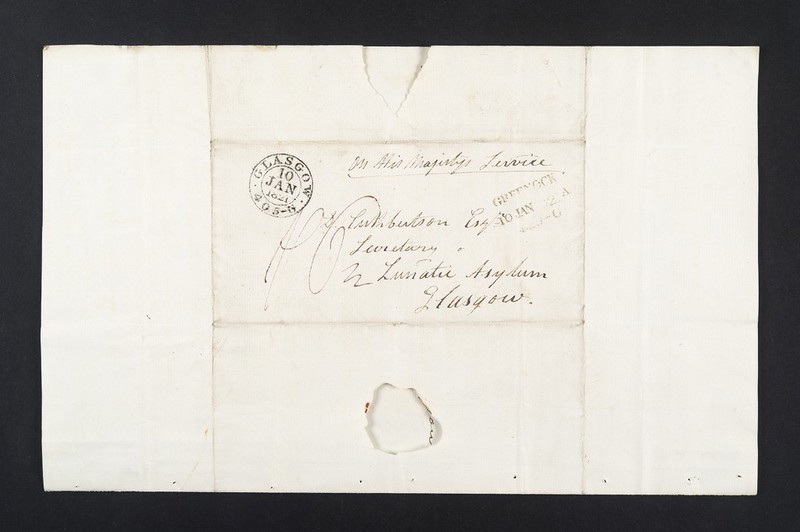 On His Majestys Service
GLASGOW
10
JAN
1821
405-G
GREENOCK
10 JAN
Cuthbertson Esqr
Secretary
Lunatic Asylum
Glasgow.